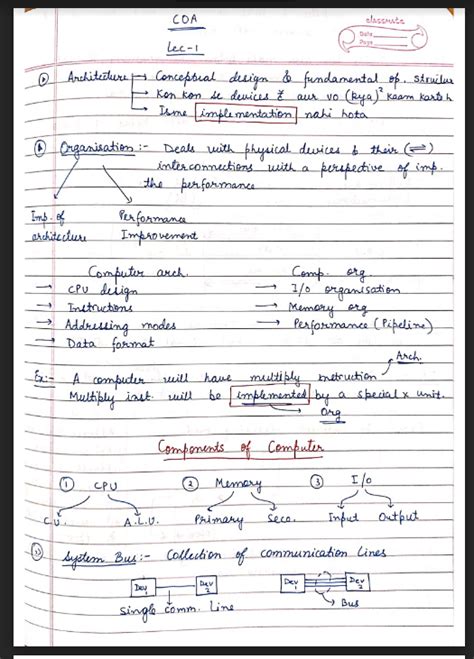 COA
classmate
Date
Page
Lec-1
Architecture → Conceptual design & fundamental op. structure
→ Kon kon se devices h aur vo (kya)² kaam karte h
→ Isme implementation nahi hota
Organisation :- Deals with physical devices & their (⇌)
interconnections with a perspective of imp.
the performance
Imp. of Performance
architecture Improvement
Computer arch. Comp. org.
→ CPU design → I/O organisation
→ Instructions → Memory org
→ Addressing modes → Performance (Pipeline)
→ Data format
Arch.
Ex:- A computer will have multiply instruction
Multiply inst. will be implemented by a special x unit.
Org
Components of Computer
① CPU ② Memory ③ I/O
C.U. A.L.U. Primary Seco. Input Output
System Bus :- Collection of communication Lines
Dev 1 Dev 2 Dev 1 Dev 2
single comm. line Bus